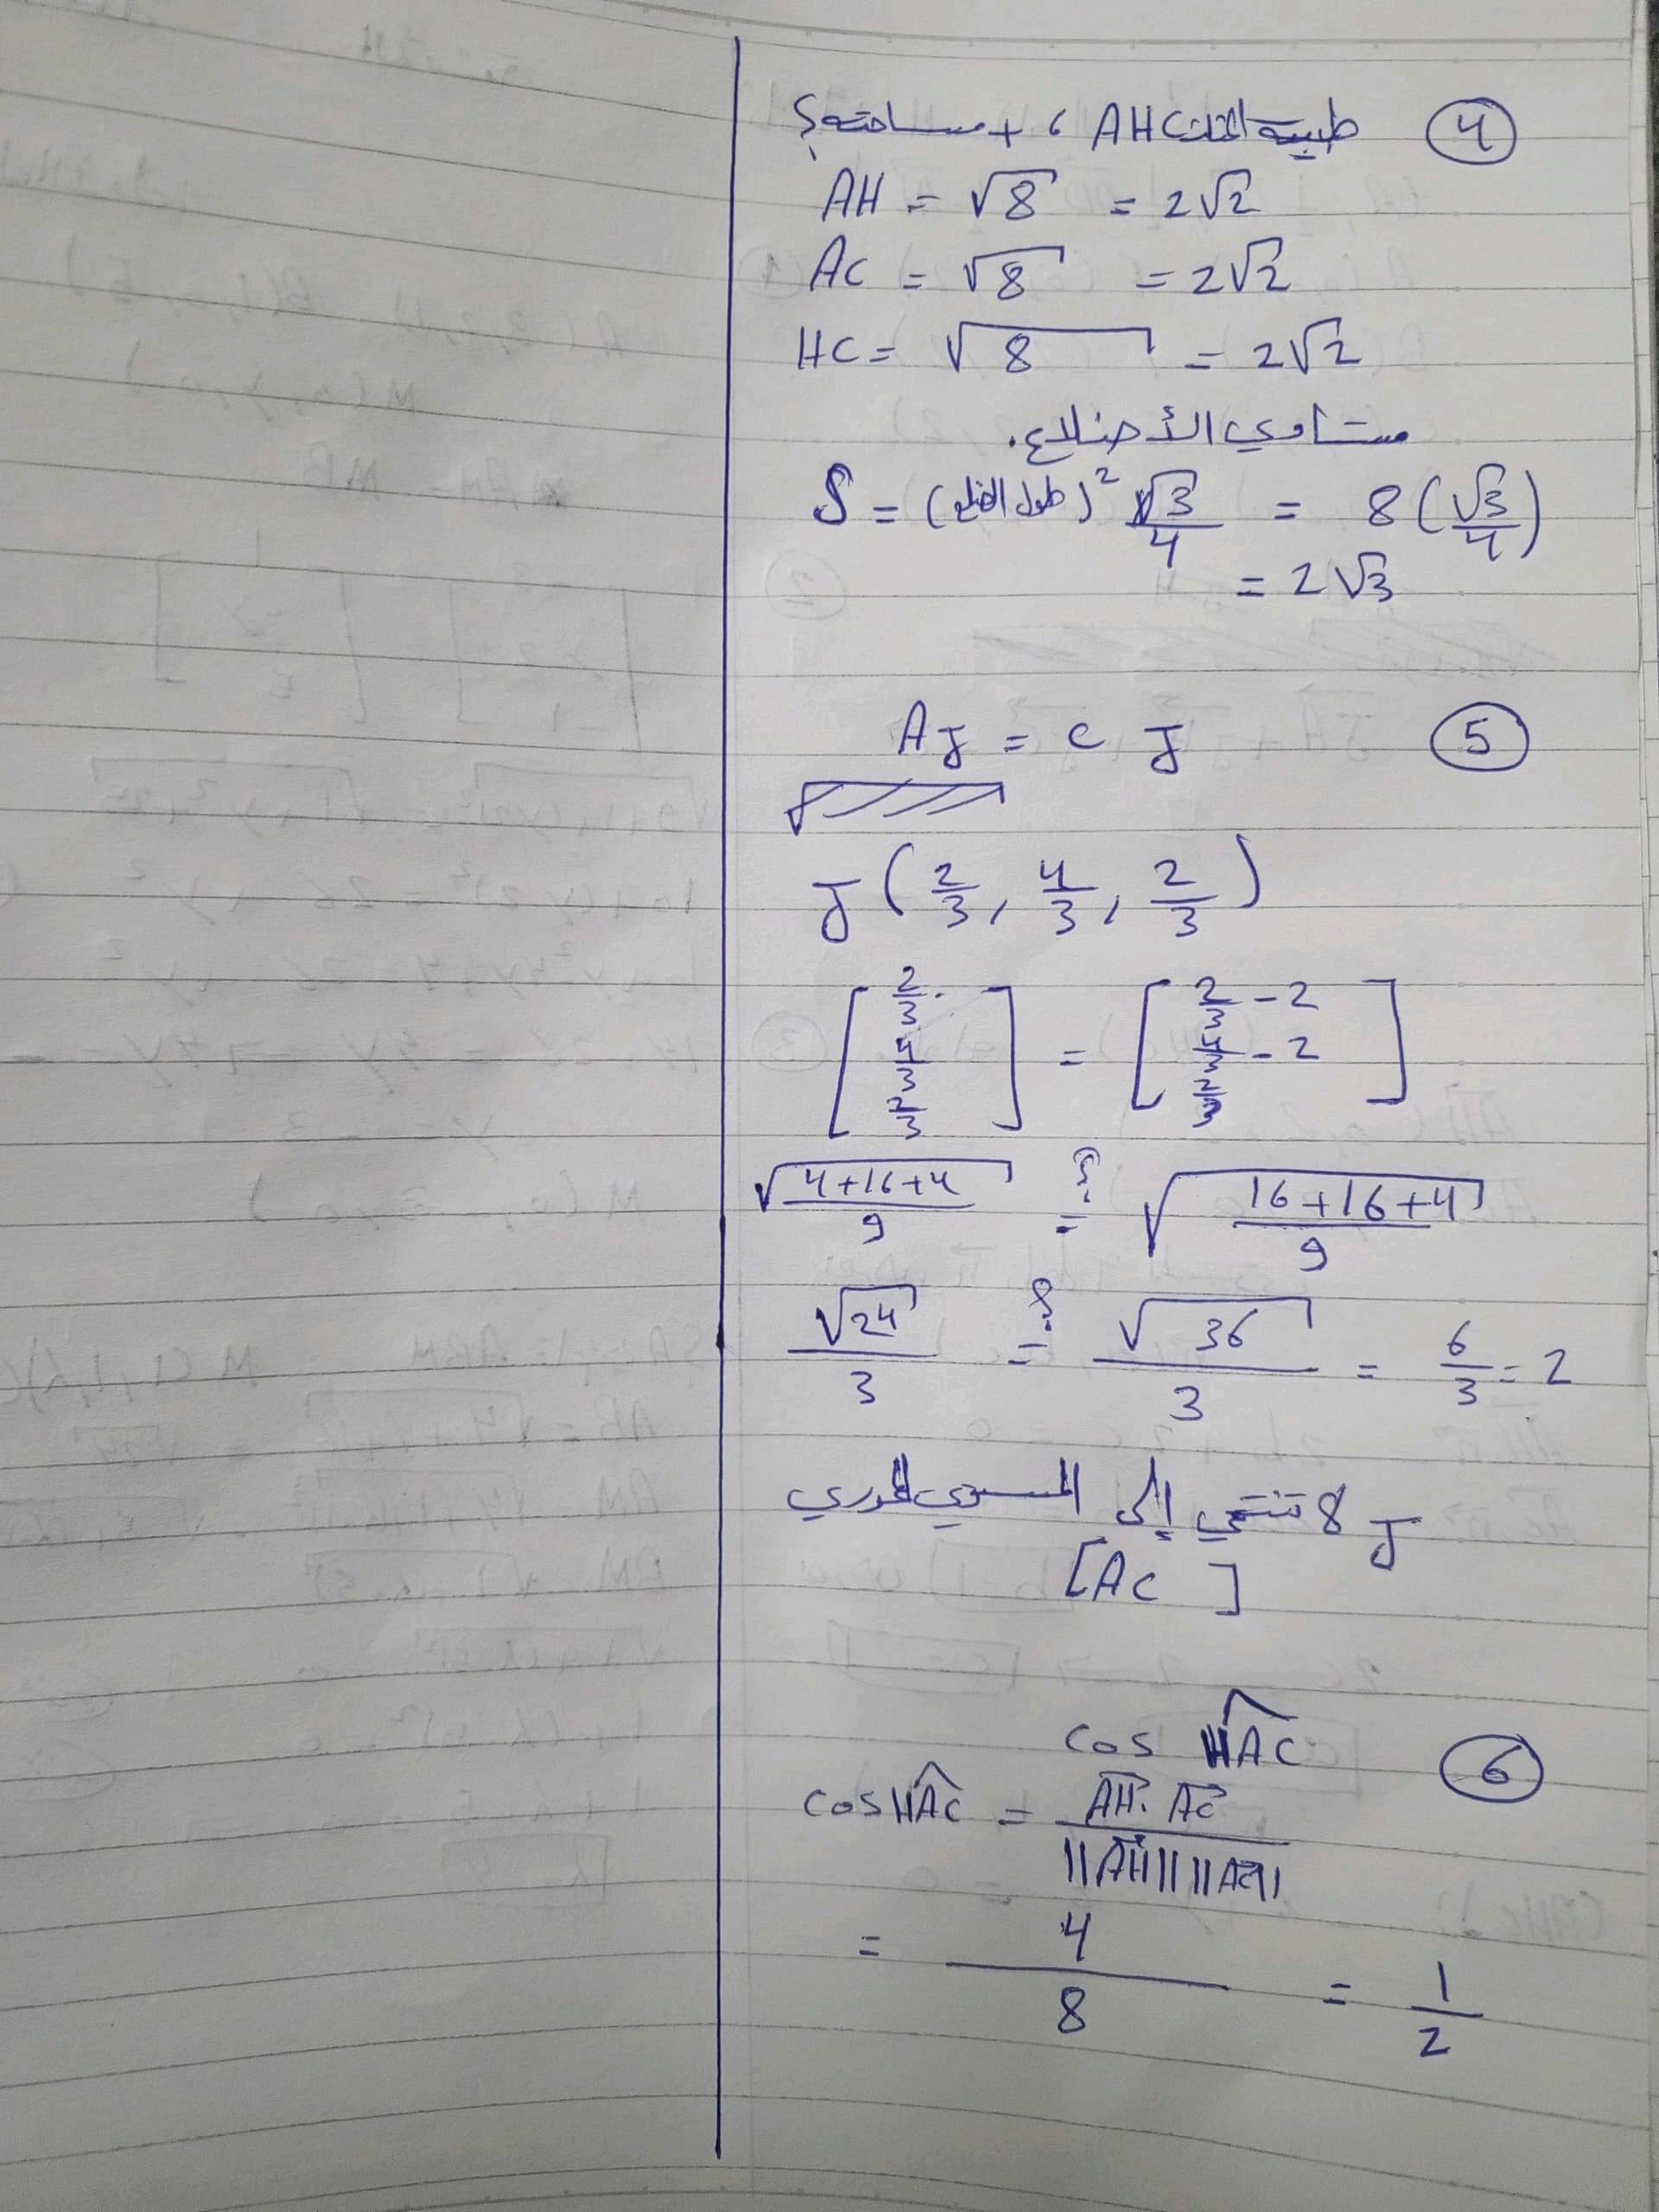 ④ طبيعة المثلث AHC ، + مساحته؟
AH = √8 = 2√2
AC = √8 = 2√2
HC = √8 = 2√2
متساوي الأضلاع.
S = (طول الضلع)² √3/4 = 8 (√3/4)
= 2√3
⑤ AJ = CJ
J (2/3, 4/3, 2/3)
[2/3 4/3 2/3] = [2/3 - 2 4/3 - 2 2/3]
√(4+16+4)/9 =? √(16+16+4)/9
√24/3 =? √36/3 = 6/3 = 2
J لا تنتمي إلى المستوي المحوري
[AC]
⑥ cos HAC
cos HAC = AH . AC / ||AH|| ||AC||
= 4/8 = 1/2